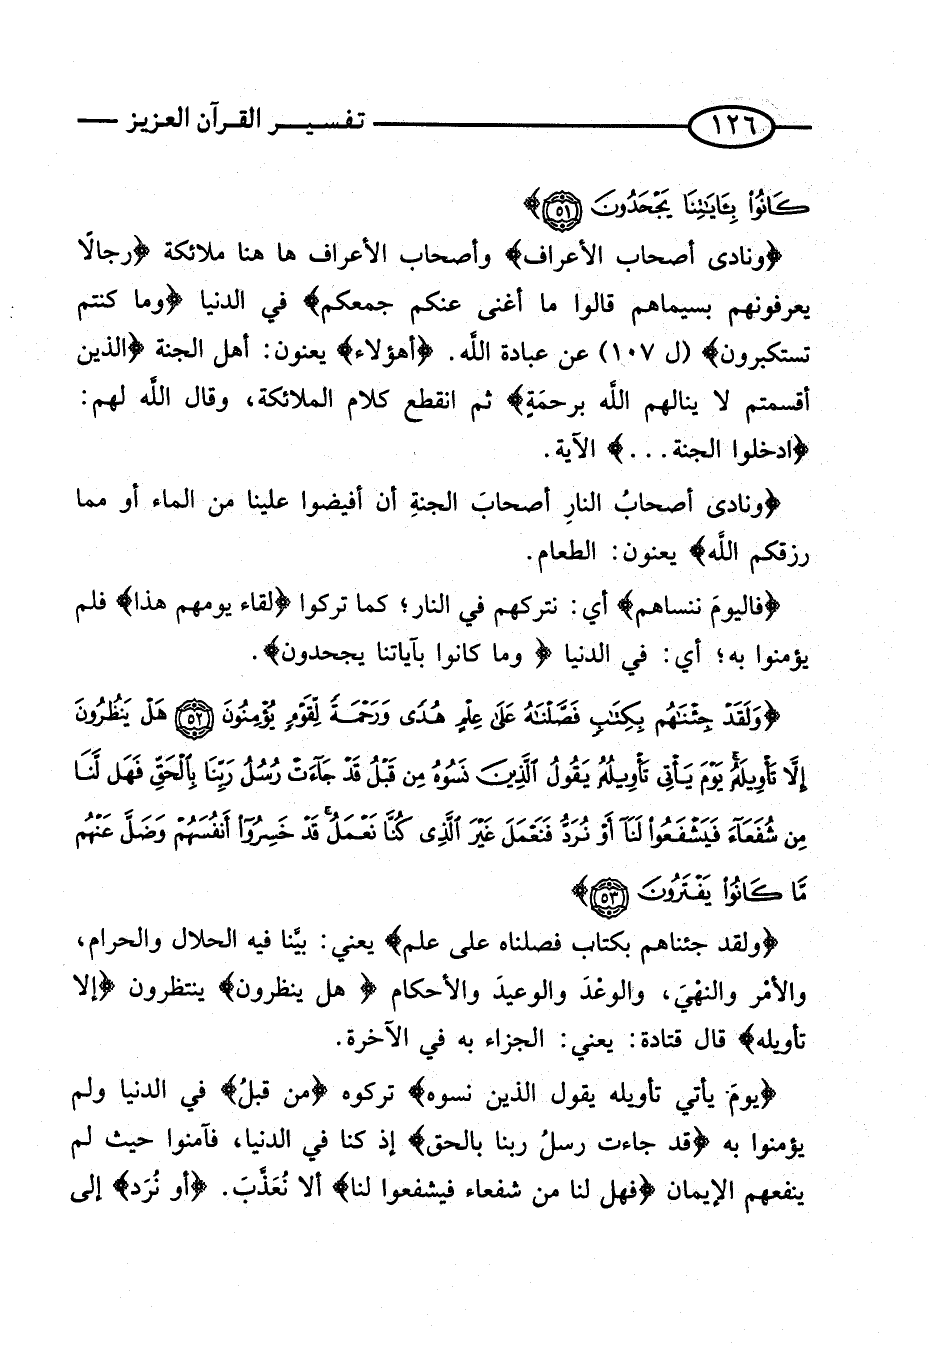 ١٢٦ تفسير القرآن العزيز
كَانُوا۟ بِـَٔايَـٰتِنَا يَجْحَدُونَ ٥١﴾
﴿ونادى أصحاب الأعراف﴾ وأصحاب الأعراف ها هنا ملائكة ﴿رجالًا
يعرفونهم بسيماهم قالوا ما أغنى عنكم جمعكم﴾ في الدنيا ﴿وما كنتم
تستكبرون﴾ (ل ١٠٧) عن عبادة اللَّه. ﴿أهؤلاء﴾ يعنون: أهل الجنة ﴿الذين
أقسمتم لا ينالهم اللَّه برحمَةٍ﴾ ثم انقطع كلام الملائكة، وقال اللَّه لهم:
﴿ادخلوا الجنة...﴾ الآية.
﴿ونادى أصحابُ النارِ أصحابَ الجنةِ أن أفيضوا علينا من الماء أو مما
رزقكم اللَّه﴾ يعنون: الطعام.
﴿فاليومَ ننساهم﴾ أي: نتركهم في النار؛ كما تركوا ﴿لقاء يومهم هذا﴾ فلم
يؤمنوا به؛ أي: في الدنيا ﴿ وما كانوا بآياتنا يجحدون﴾.
﴿وَلَقَدْ جِئْنَـٰهُم بِكِتَـٰبٍ فَصَّلْنَـٰهُ عَلَىٰ عِلْمٍ هُدًى وَرَحْمَةً لِّقَوْمٍ يُؤْمِنُونَ ٥٢ هَلْ يَنظُرُونَ
إِلَّا تَأْوِيلَهُۥ ۚ يَوْمَ يَأْتِى تَأْوِيلُهُۥ يَقُولُ ٱلَّذِينَ نَسُوهُ مِن قَبْلُ قَدْ جَآءَتْ رُسُلُ رَبِّنَا بِٱلْحَقِّ فَهَل لَّنَا
مِن شُفَعَآءَ فَيَشْفَعُوا۟ لَنَآ أَوْ نُرَدُّ فَنَعْمَلَ غَيْرَ ٱلَّذِى كُنَّا نَعْمَلُ ۚ قَدْ خَسِرُوٓا۟ أَنفُسَهُمْ وَضَلَّ عَنْهُم
مَّا كَانُوا۟ يَفْتَرُونَ ٥٣﴾
﴿ولقد جئناهم بكتاب فصلناه على علم﴾ يعني: بيَّنا فيه الحلال والحرام،
والأمْر والنهْيَ، والوعْدَ والوعيدَ والأحكام ﴿ هل ينظرون﴾ ينتظرون ﴿إلا
تأويله﴾ قال قتادة: يعني: الجزاء به في الآخرة.
﴿يومَ يأتي تأويله يقول الذين نسوه﴾ تركوه ﴿من قبلُ﴾ في الدنيا ولم
يؤمنوا به ﴿قد جاءت رسلُ ربنا بالحق﴾ إذ كنا في الدنيا، فآمنوا حيث لم
ينفعهم الإيمان ﴿فهل لنا من شفعاء فيشفعوا لنا﴾ ألا نُعَذَّبَ. ﴿أو نُرَد﴾ إلى